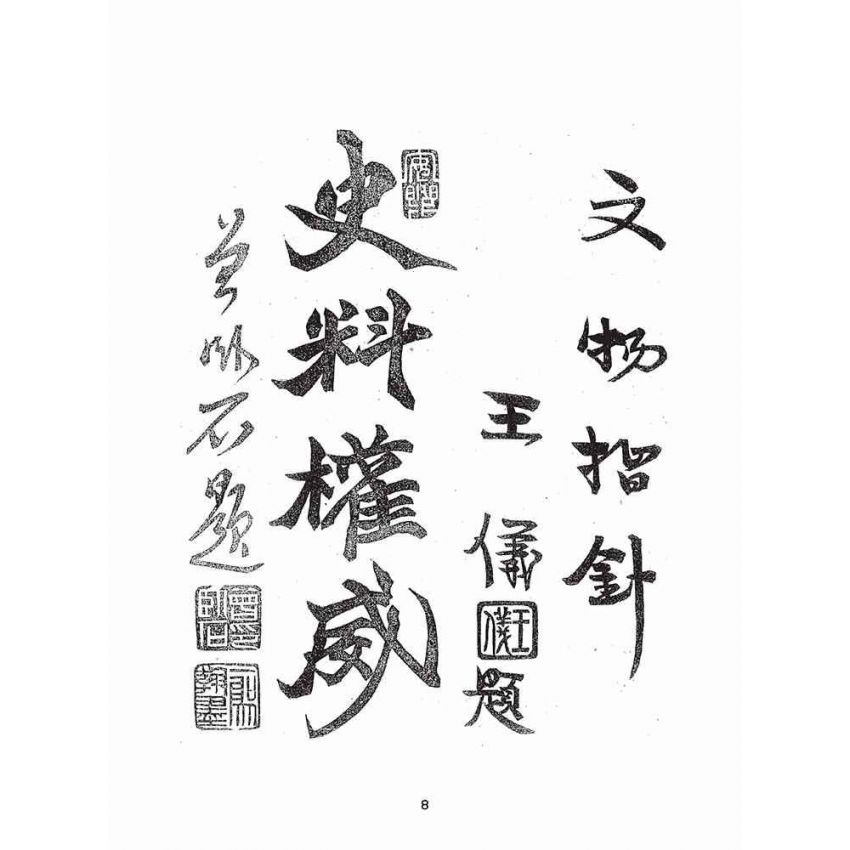 文物指針
王儀題
王儀
史料權威
曾臥石題
8